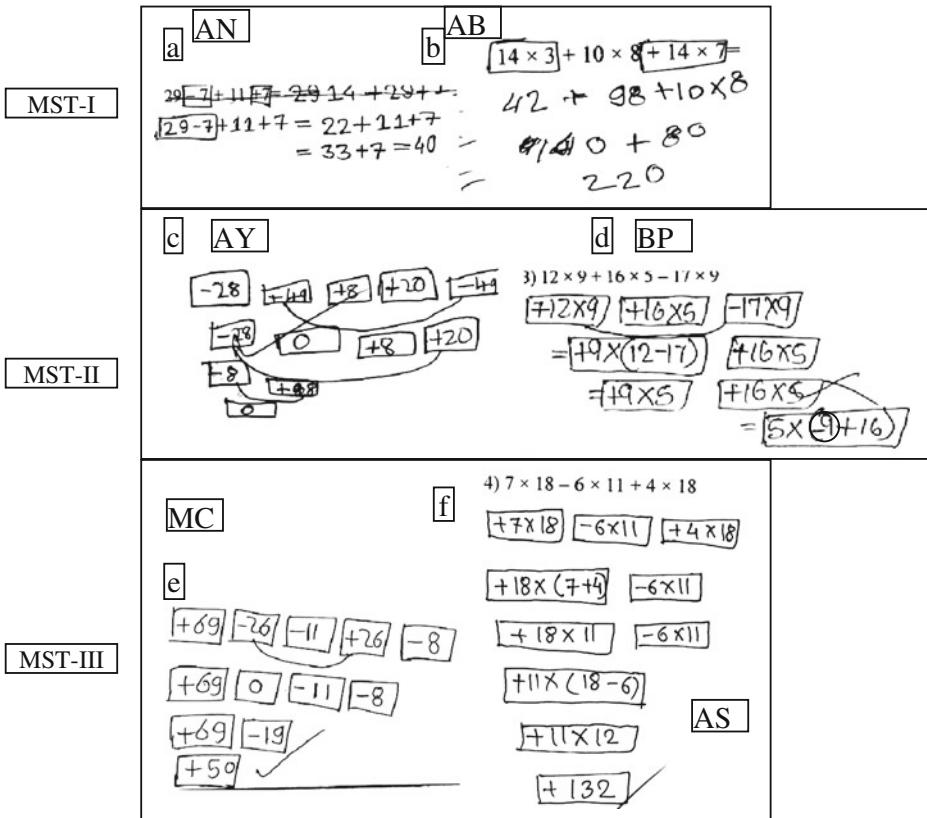 MST-I
a AN
29 -7 + 11 +7 = 29 14 + 29 + 7
29-7 +11+7 = 22+11+7
= 33+7 =40
b AB
14 × 3 + 10 × 8 + 14 × 7 =
42 + 98 +10×8
= 0 + 80
= 220
MST-II
c AY
-28 +49 +8 +20 -49
-28 0 +8 +20
-8 +88
0
d BP
3) 12 × 9 + 16 × 5 – 17 × 9
+12×9 +16×5 -17×9
= +9×(12-17) +16×5
= +9×5 +16×5
= 5×(-9+16)
MST-III
MC
e
+69 -26 -11 +26 -8
+69 0 -11 -8
+69 -19
+50 ✓
f
4) 7 × 18 – 6 × 11 + 4 × 18
+7×18 -6×11 +4×18
+18×(7+4) -6×11
+18×11 -6×11
+11×(18-6)
+11×12
+132
AS